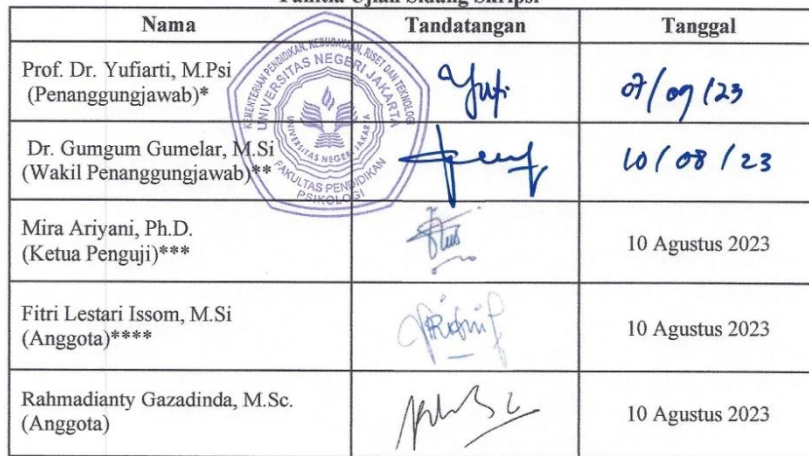 Panitia Ujian Sidang Skripsi
Nama Tandatangan Tanggal
Prof. Dr. Yufiarti, M.Psi
(Penanggungjawab)*
Yufi
07/09/23
Dr. Gumgum Gumelar, M.Si
(Wakil Penanggungjawab)**
10/08/23
Mira Ariyani, Ph.D.
(Ketua Penguji)***
10 Agustus 2023
Fitri Lestari Issom, M.Si
(Anggota)****
10 Agustus 2023
Rahmadianty Gazadinda, M.Sc.
(Anggota)
10 Agustus 2023
KEMENTERIAN PENDIDIKAN, KEBUDAYAAN, RISET DAN TEKNOLOGI
UNIVERSITAS NEGERI JAKARTA
UNIVERSITAS NEGERI JAKARTA
FAKULTAS PENDIDIKAN
PSIKOLOGI